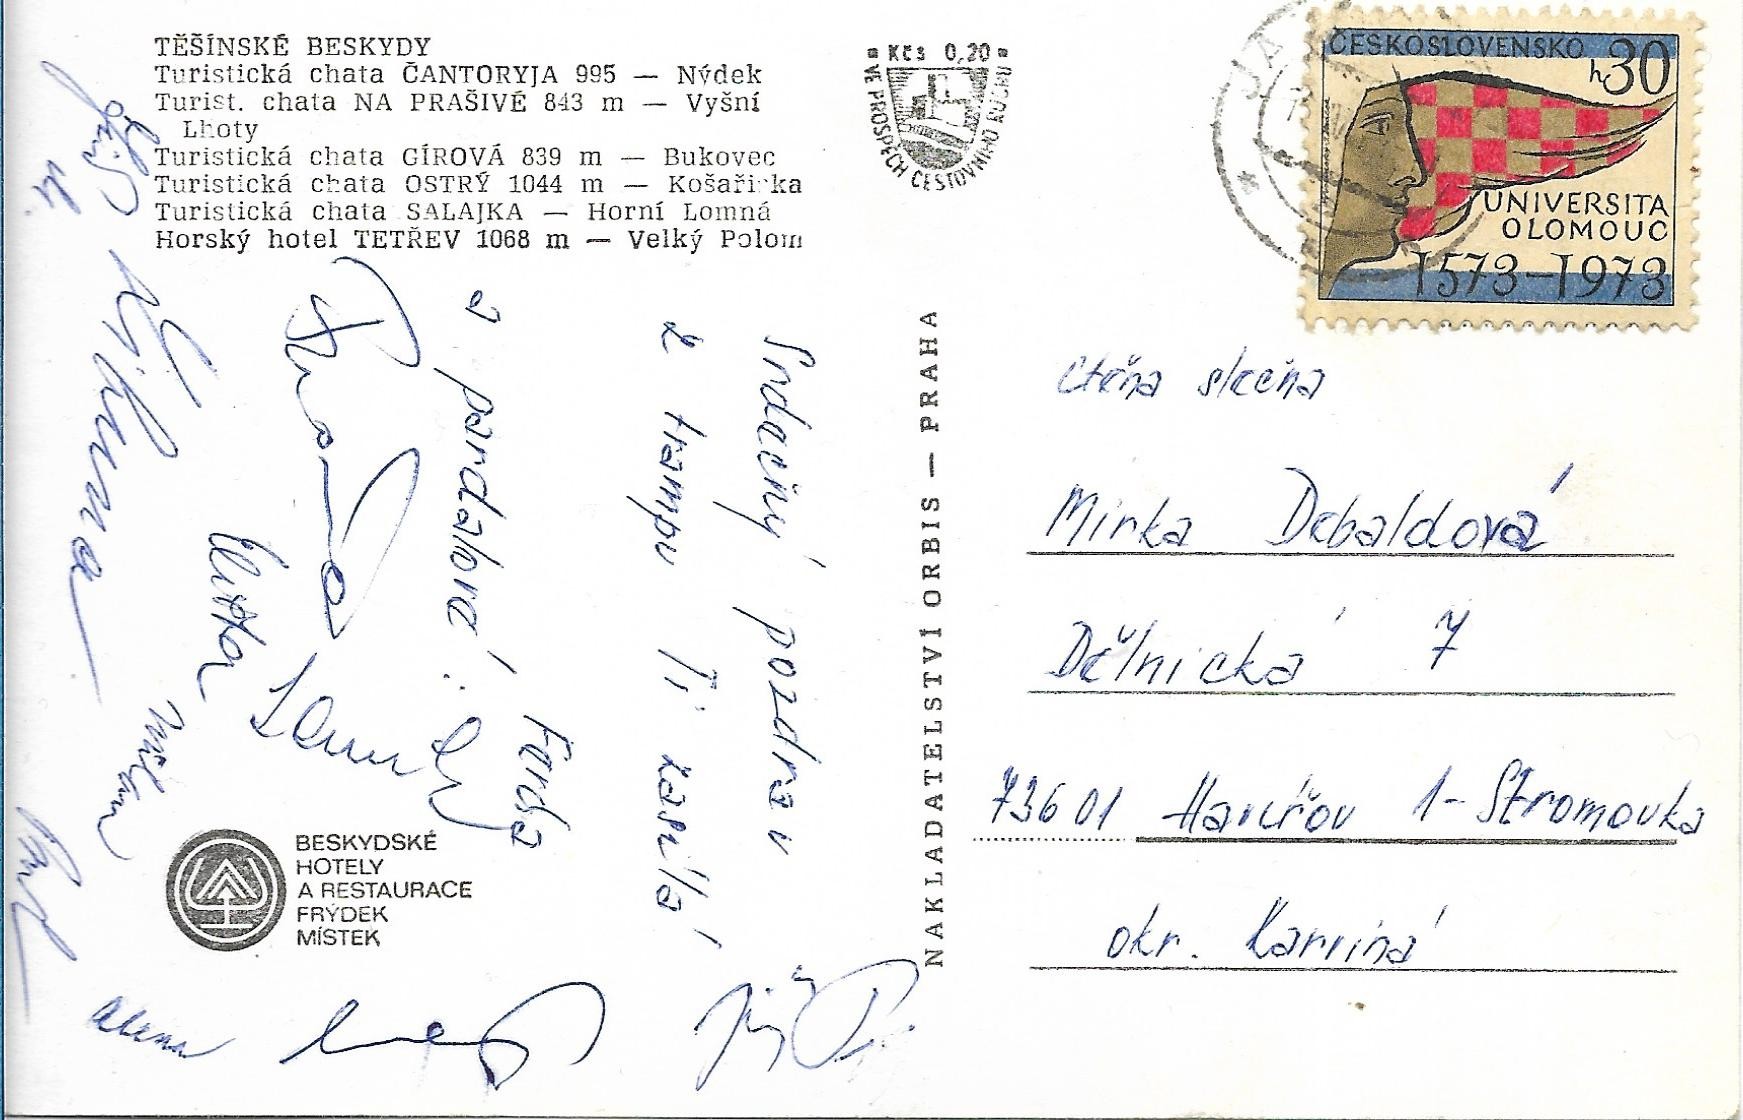 TĚŠÍNSKÉ BESKYDY
Turistická chata ČANTORYJA 995 — Nýdek
Turist. chata NA PRAŠIVÉ 843 m — Vyšní
Lhoty
Turistická chata GÍROVÁ 839 m — Bukovec
Turistická chata OSTRÝ 1044 m — Košařiska
Turistická chata SALAJKA — Horní Lomná
Horský hotel TETŘEV 1068 m — Velký Polom
Kčs 0,20
VE PROSPĚCH CESTOVNÍHO RUCHU
ČESKOSLOVENSKO
h30
UNIVERSITA
OLOMOUC
1573-1973
Srdečný pozdrav
z trampu Ti zasílá
Farda
Milan
Alena
Jiří
NAKLADATELSTVÍ ORBIS — PRAHA
Ctěná slečna
Mirka Debaldová
Dělnická 7
73601 Havířov 1-Stromovka
okr. Karviná
BESKYDSKÉ
HOTELY
A RESTAURACE
FRÝDEK
MÍSTEK